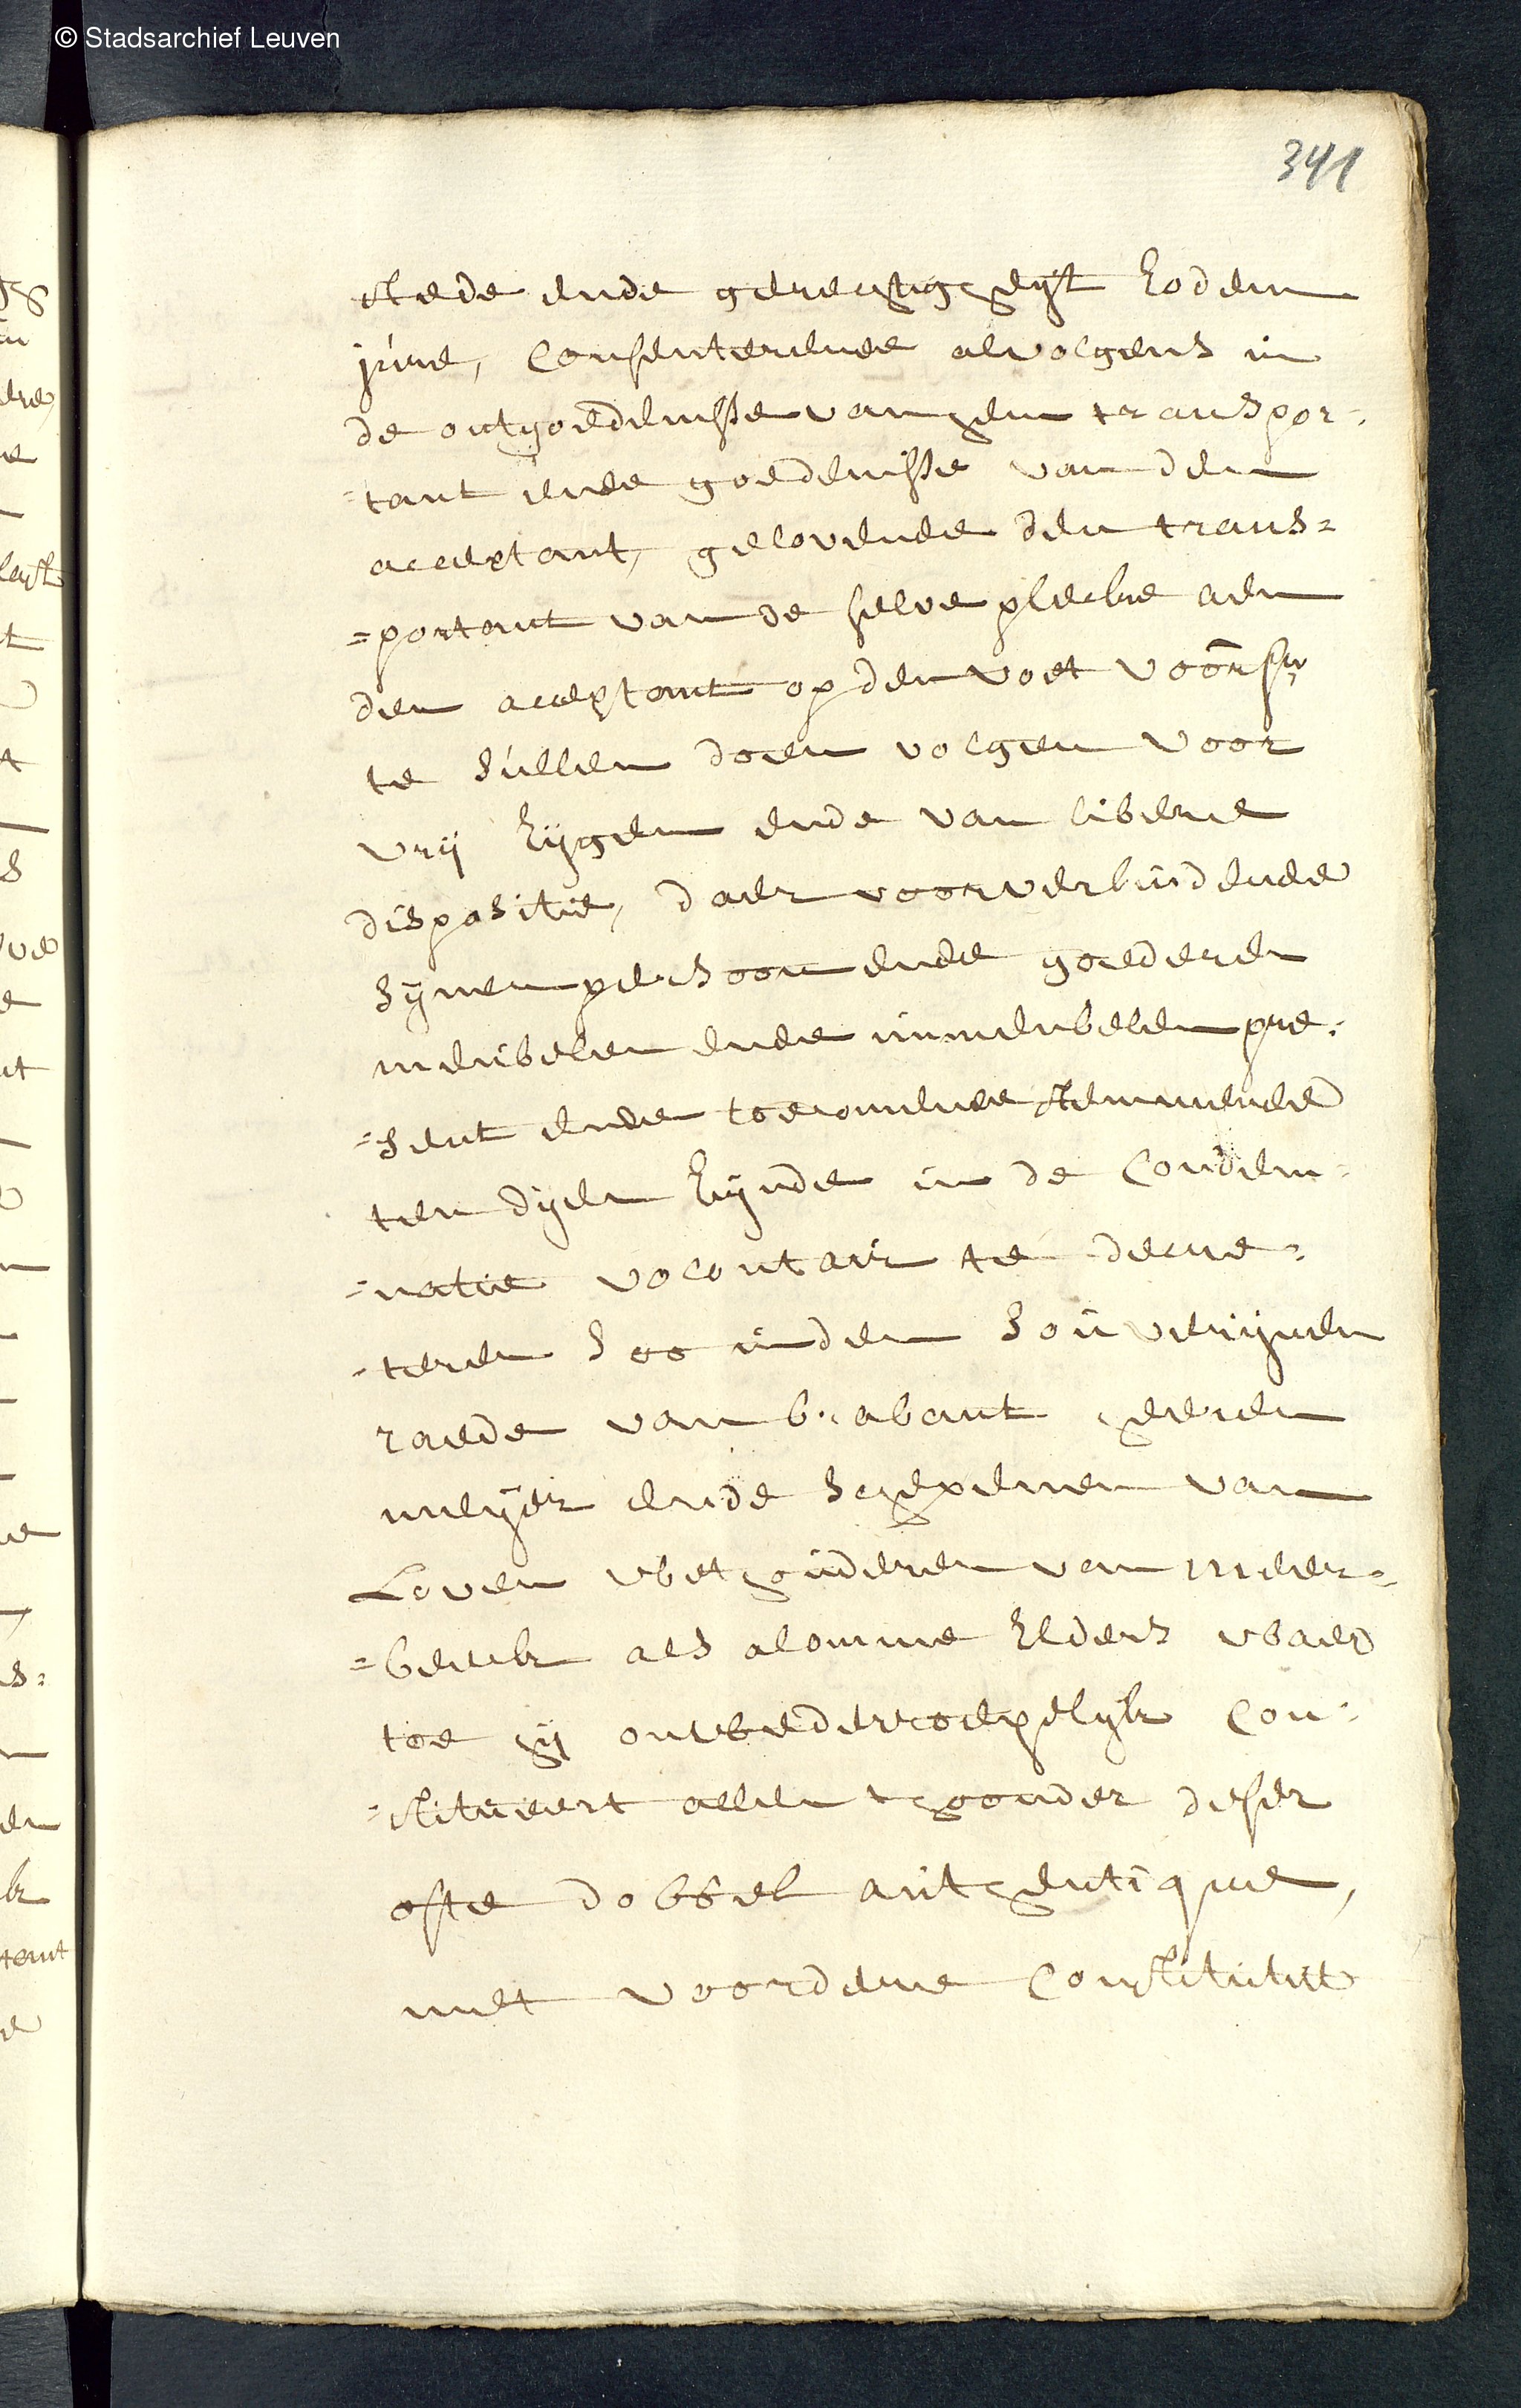 © Stadsarchief Leuven
341
stede ende gerechtigheyt Eodem
jure, Consenterende alvolgens in
de ontgoedenisse van hem transpor-
-tant ende goedenisse van den
acceptant, gelovende den trans=
=portant van de selve plecke aen
den acceptant op den voet voorsr
te sullen doen volgen voor
vrij Eijgen ende van liberne
dispositie, daer voor verbindende
sijnen persoon ende goederen
meubelen ende immeubelen pre-
=sent ende toecomende stemmende
ten dijen Eijnde in de Condem-
-natie volontair te decre-
-teren soo in den souvereijnen
raede van brabant heeren
meijer ende schepenen van
Loven wethouderen van meer-
=beeck als alomme Elders waer
toe hij onwederroepelijk Con-
-stitueert allen thoonder deser
ofte dobbel authentique,
met voordere Constitutie